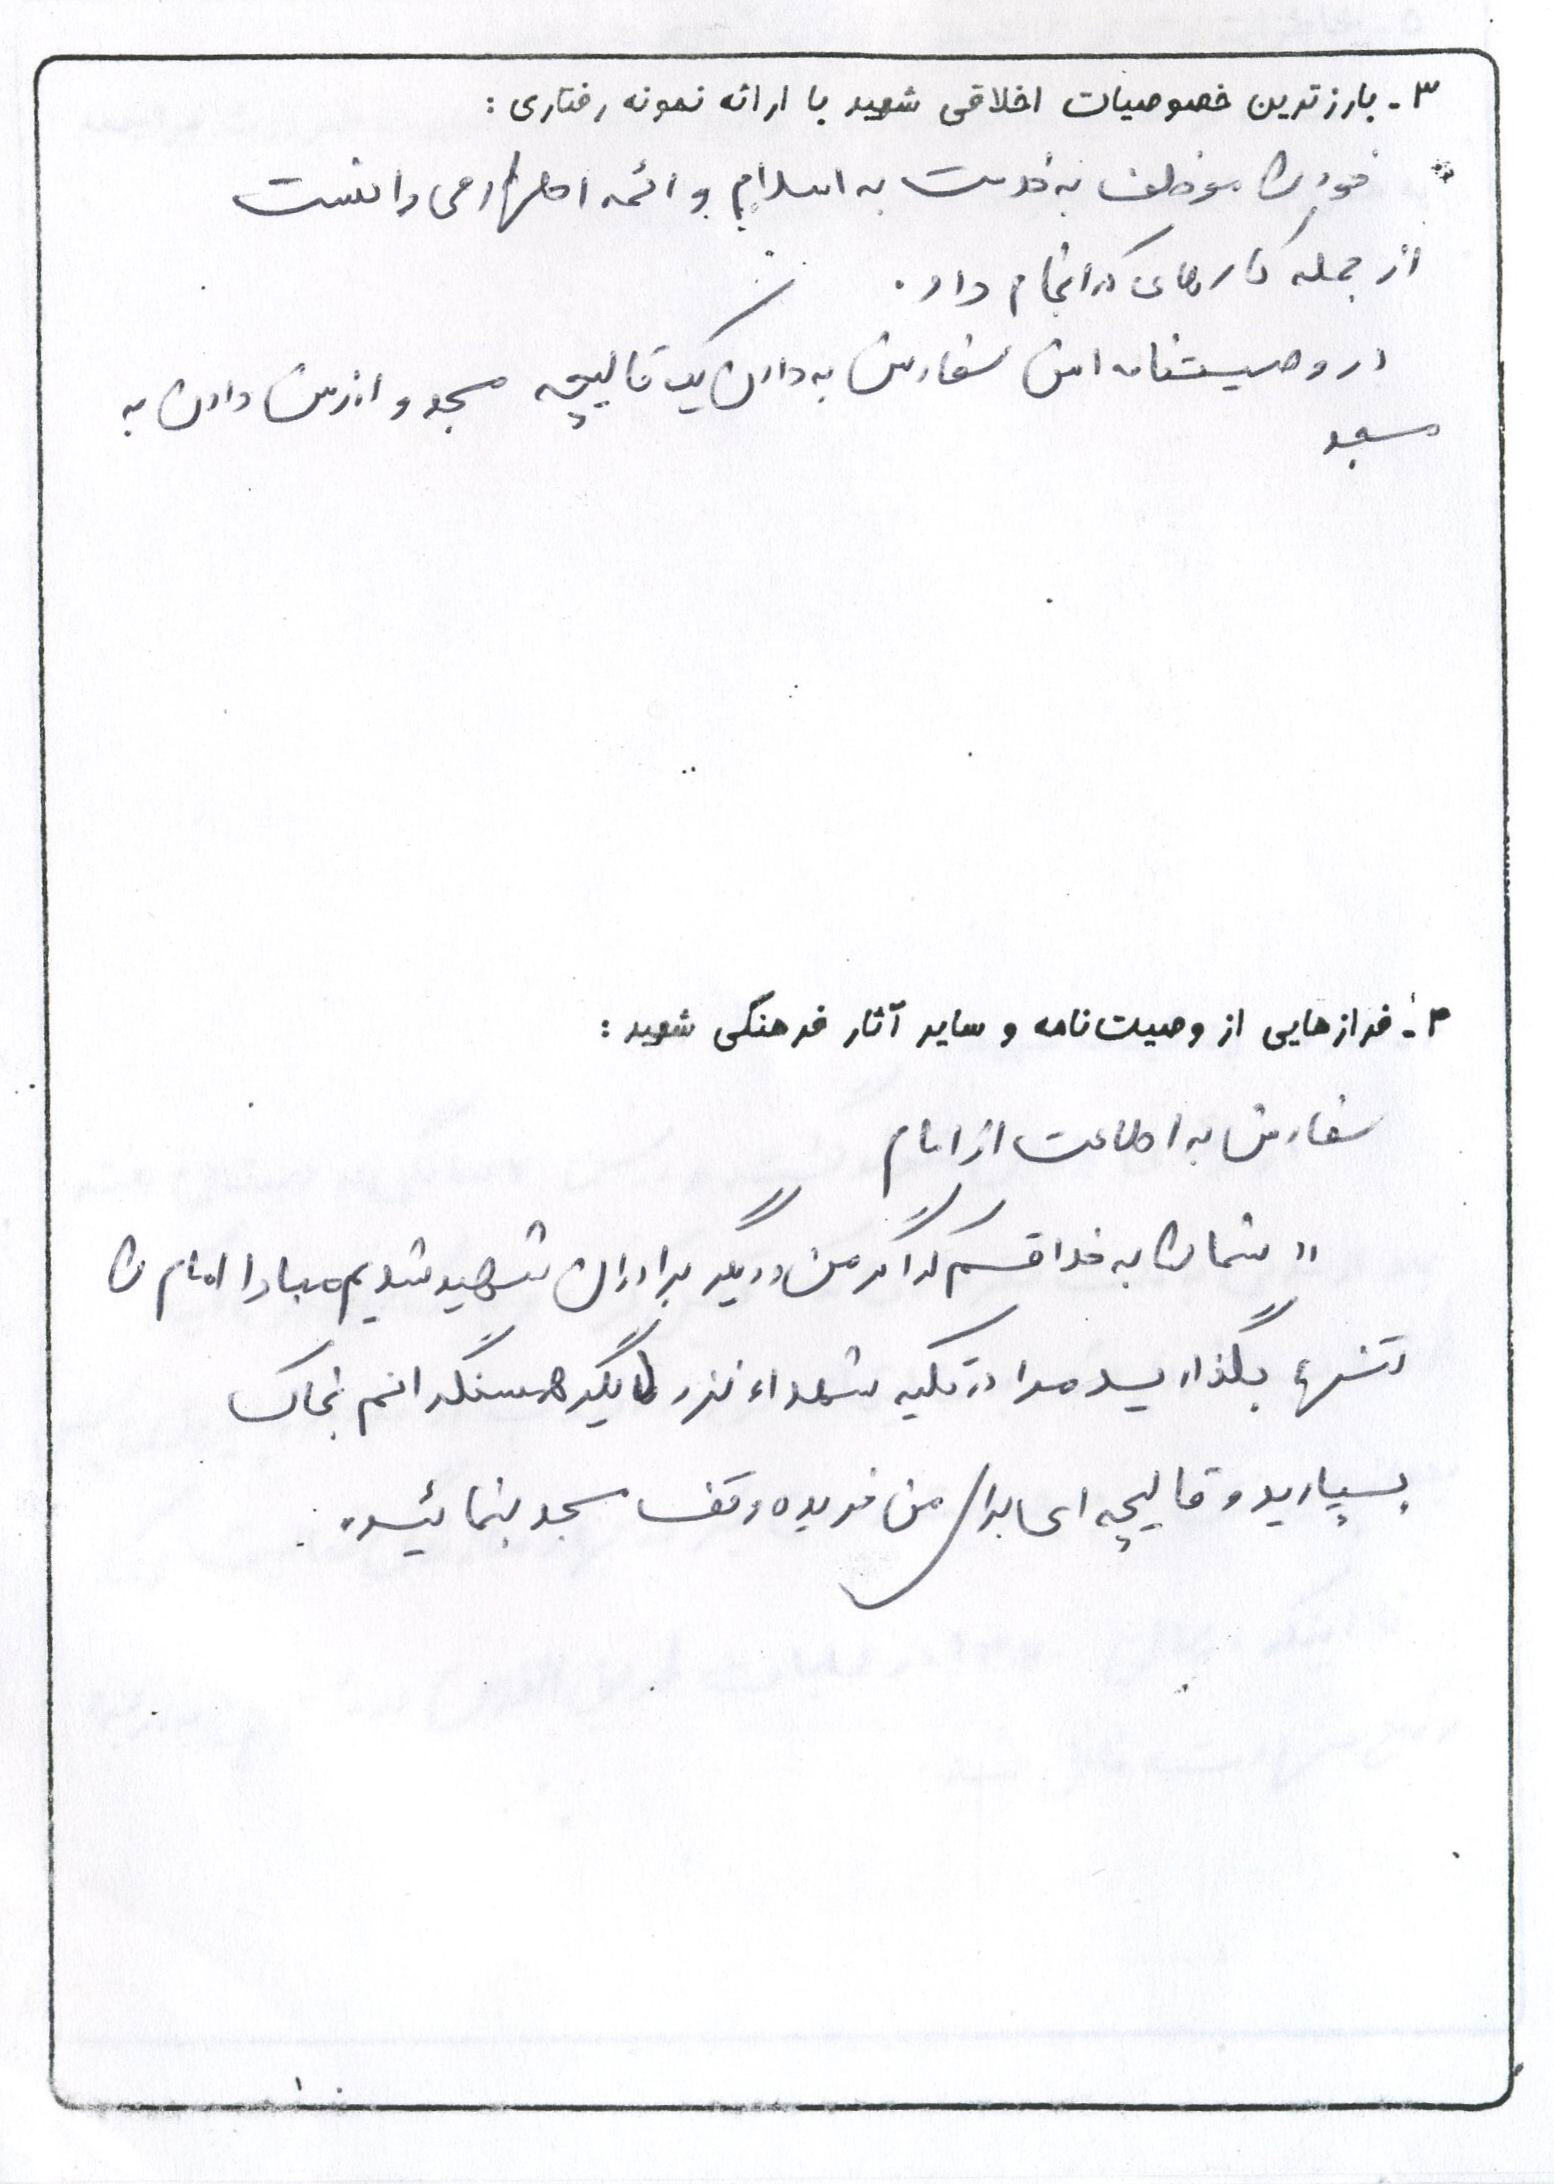 ۳ـ بارزترین خصوصیات اخلاقی شهید با ارائه نمونه رفتاری :
خود را موظف به خدمت به اسلام و ائمه اطهار می دانست
از جمله کارهای که انجام داد.
در وصیتنامه اش سفارش به دادن یک قالیچه مسجد و ارزش دادن به
مسجد
۴ـ فرازهایی از وصیت‌نامه و سایر آثار فرهنگی شهید :
سفارش به اطاعت از امام
" شما را به خدا قسم که اگر من و دیگر برادران شهید شدیم مبادا امام را
تنها بگذارید مرا در تکیه شهداء نزد دیگر همسنگرانم بخاک
بسپارید و قالیچه ای برای من خریده وقف مسجد بنمائید.